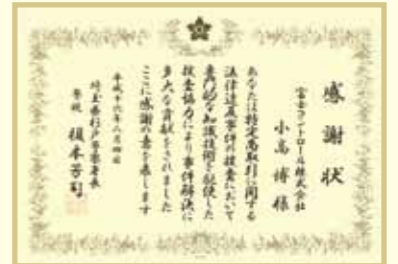 感謝状
富士コントロール株式会社
小高 博 様
あなたは特定商取引に関する
法律違反事件の捜査において
専門的な知識技術を駆使した
捜査協力により事件解決に
多大な貢献をされました
ここに感謝の意を表します
平成十六年八月四日
埼玉県杉戸警察署長
警視 榎本